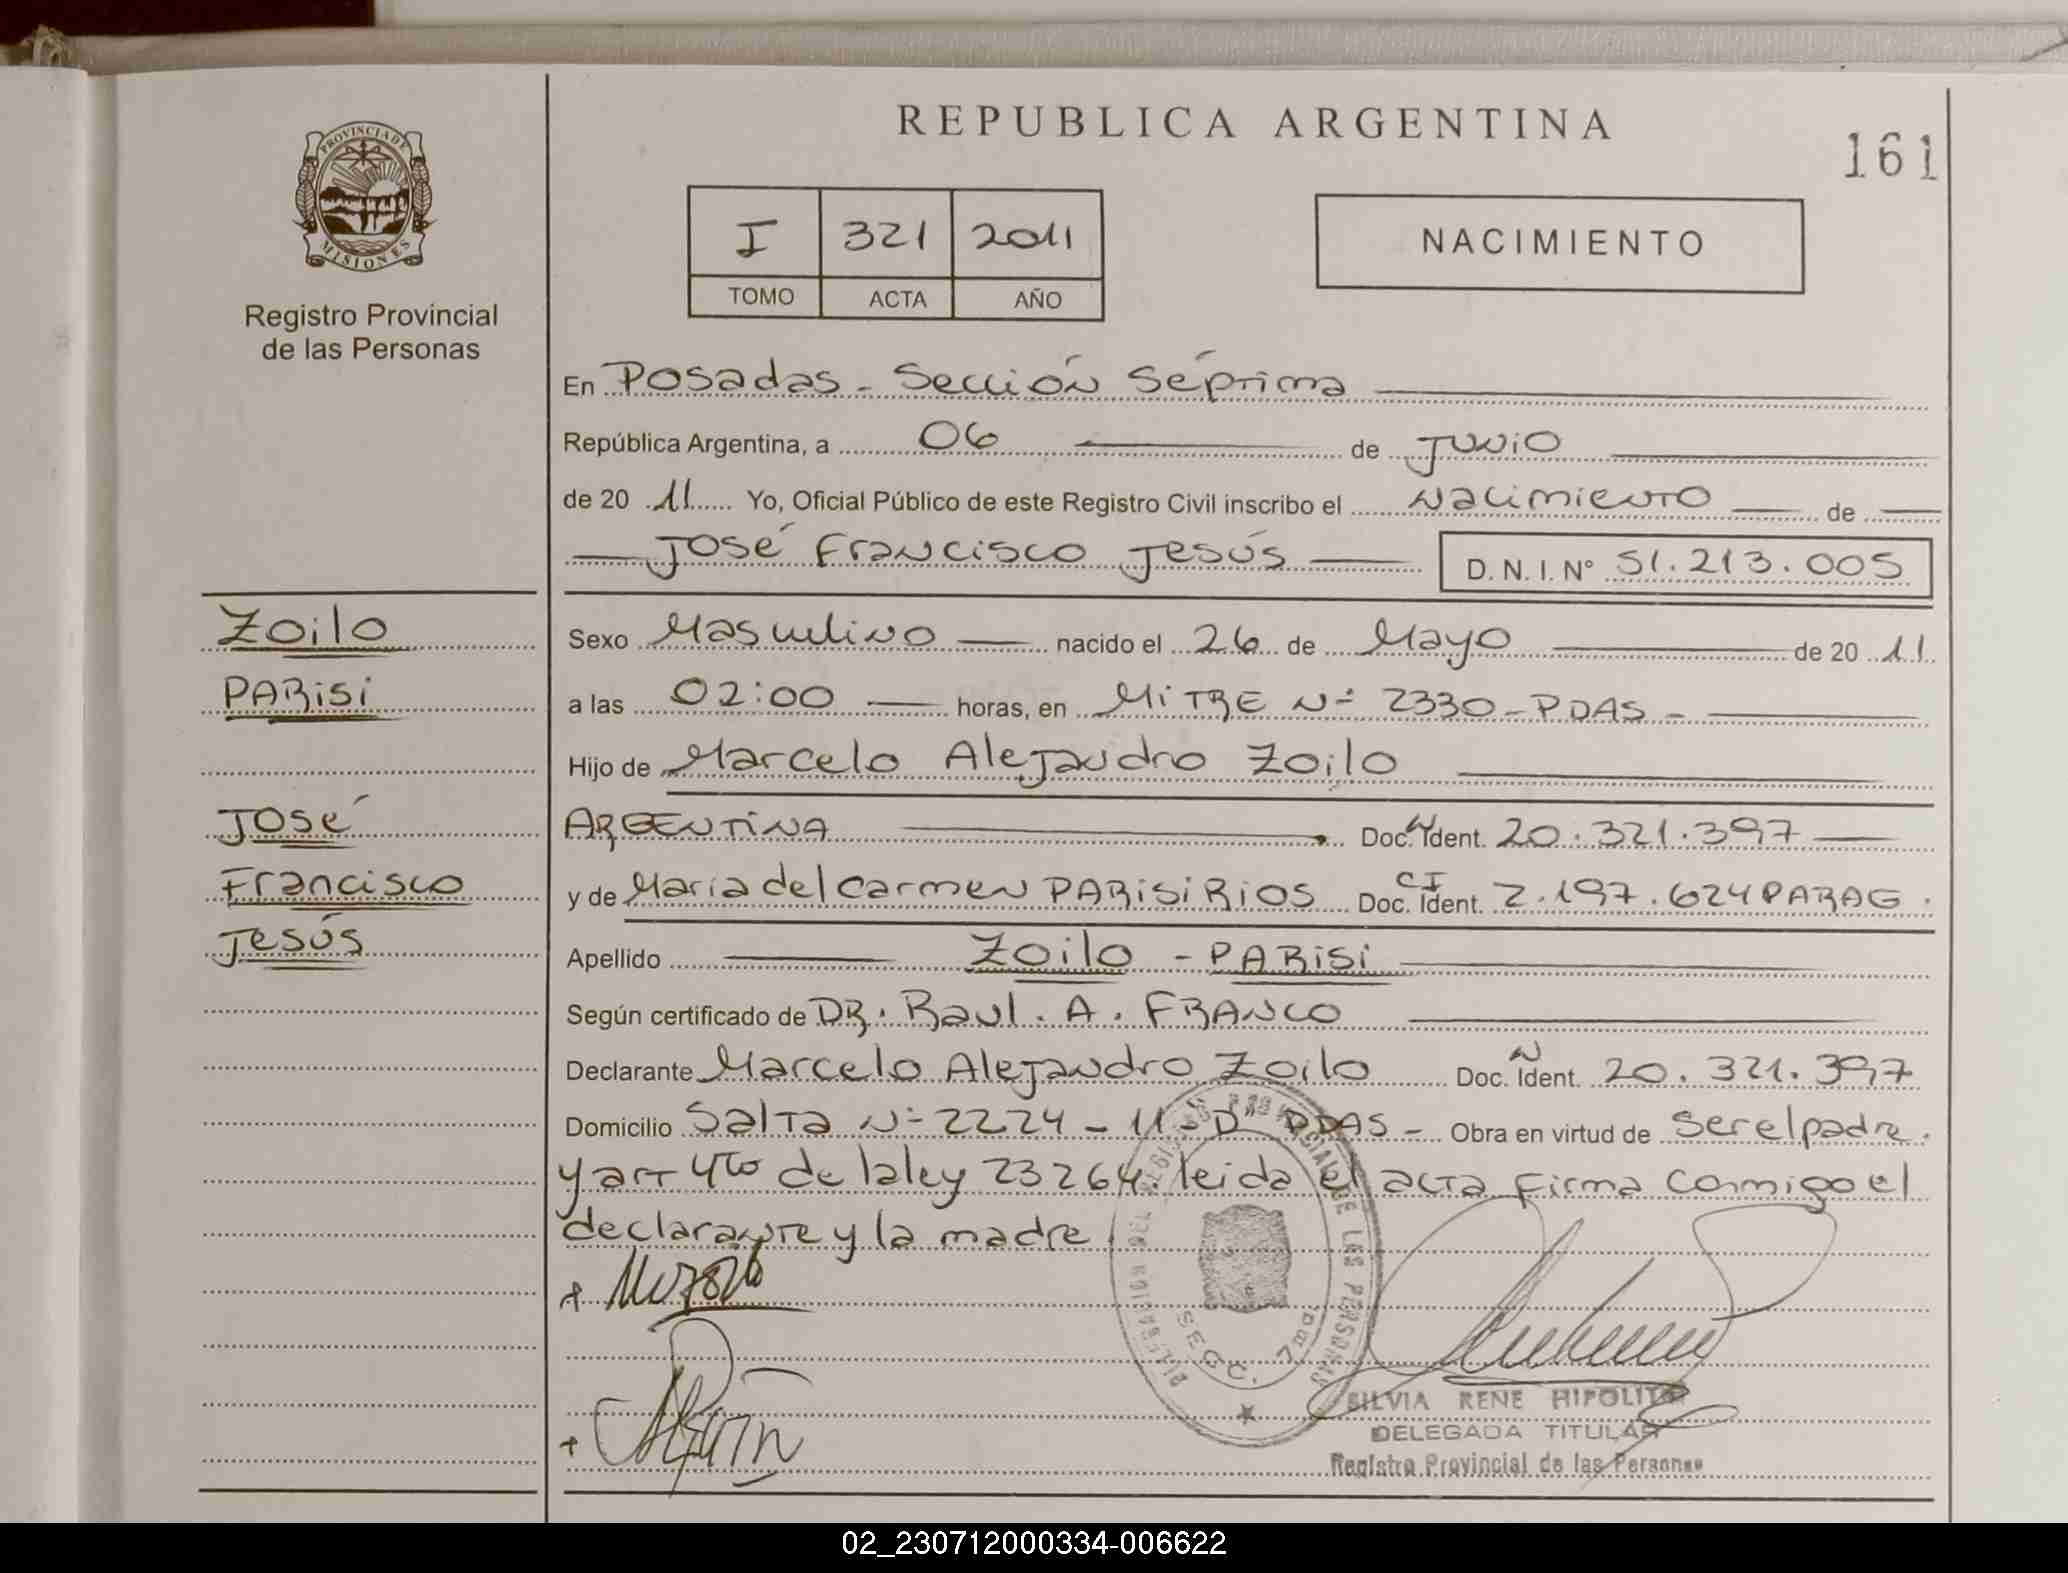 PROVINCIA DE
MISIONES
Registro Provincial
de las Personas
REPUBLICA ARGENTINA
161
I 321 2011
TOMO ACTA AÑO
NACIMIENTO
En Posadas - Sección Séptima
República Argentina, a 06 de Junio
de 20 11 Yo, Oficial Público de este Registro Civil inscribo el Nacimiento de
José Francisco Jesús D. N. I. N° 51.213.005
Zoilo
PARisi
José
Francisco
Jesús
Sexo Masculino nacido el 26 de Mayo de 20 11
a las 02:00 horas, en MiTRE Nº 2330 - PDAS -
Hijo de Marcelo Alejandro Zoilo
ARGENTINA Doc. N Ident. 20.321.397
y de María del Carmen PARiSi RiOS Doc. CI Ident. 2.197.624 PARAG.
Apellido Zoilo - PARiSi
Según certificado de DR. Raul. A. FRANCO
Declarante Marcelo Alejandro Zoilo Doc. N Ident. 20.321.397
Domicilio Salta Nº 2224 - 11 - D PDAS - Obra en virtud de ser el padre.
y art 4to de la ley 23264. leida el acta firma conmigo el
declarante y la madre.
DELEGACION DEL REGISTRO PROVINCIAL DE LAS PERSONAS
SECC. 7ma.
SILVIA RENE HIPOLITO
DELEGADA TITULAR
Registro Provincial de las Personas
02_230712000334-006622